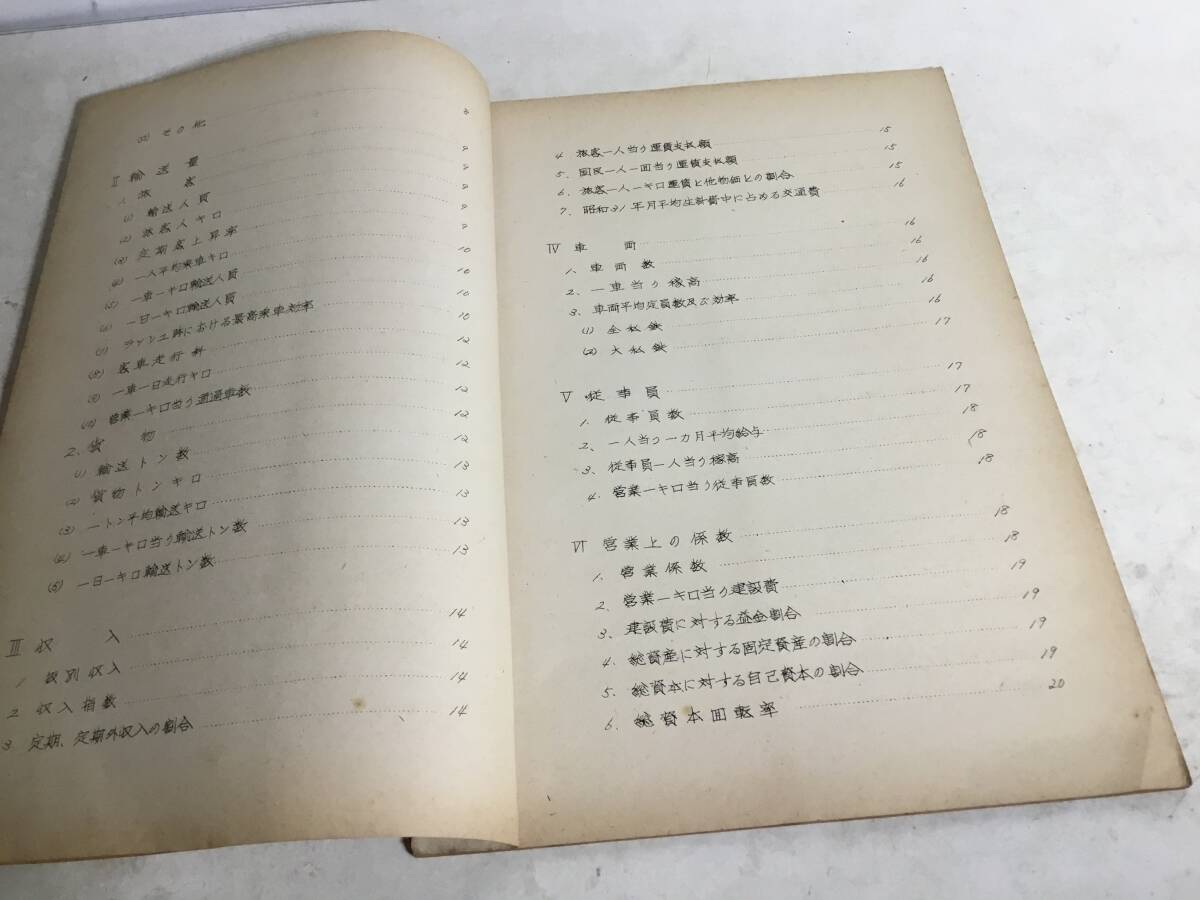 その他 8
II 輸送量 8
1. 旅客 8
(1) 輸送人員 8
(2) 旅客人キロ 9
(3) 定期客上昇率 9
(4) 一人平均乗車キロ 10
(5) 一車一キロ輸送人員 10
(6) 一日一キロ輸送人員 10
(7) ラッシユ時における最高乗車効率 10
(8) 客車走行粁 12
(9) 一車一日走行キロ 12
(10) 営業一キロ当う通過車数 12
2. 貨物 12
(1) 輸送トン数 12
(2) 貨物トンキロ 13
(3) 一トン平均輸送キロ 13
(4) 一車一キロ当う輸送トン数 13
(5) 一日一キロ輸送トン数 13
III 収入 14
1 級別収入 14
2 収入指数 14
3 定期、定期外収入の割合 14
4 旅客一人当う運賃支払額 15
5. 国民一人一回当う運賃支払額 15
6. 旅客一人一キロ運賃と他物価との割合 15
7. 昭和31年月平均生計費中に占める交通費 16
IV 車両 16
1. 車両数 16
2. 一車当う稼高 16
3. 車両平均定員数及び効率 16
(1) 全私鉄 16
(2) 大私鉄 17
V 従事員 17
1. 従事員数 17
2. 一人当う一カ月平均給与 18
3. 従事員一人当う稼高 18
4. 営業一キロ当う従事員数 18
VI 営業上の係数 18
1. 営業係数 18
2. 営業一キロ当う建設費 19
3. 建設費に対する益金割合 19
4. 総資産に対する固定資産の割合 19
5. 総資本に対する自己資本の割合 19
6. 総資本回転率 20